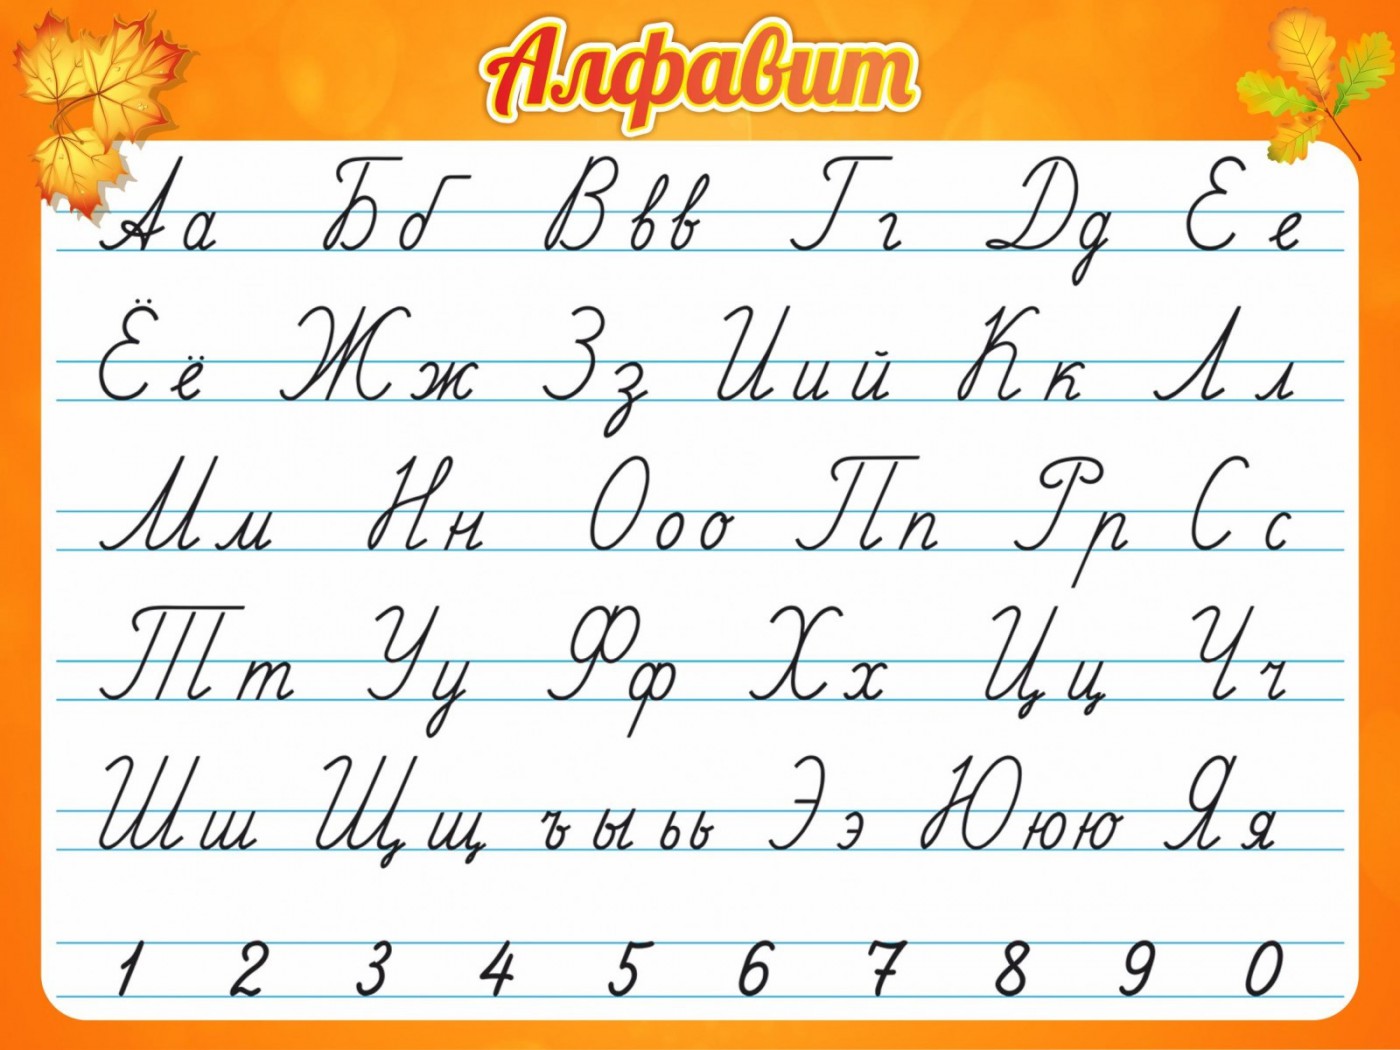 Алфавит
Аа Бб Ввв Гг Дд Ее
Ёё Жж Зз Иий Кк Лл
Мм Нн Ооо Пп Рр Сс
Тт Уу Фф Хх Цц Чч
Шш Щщ ъ ы ьь Ээ Ююю Яя
1 2 3 4 5 6 7 8 9 0